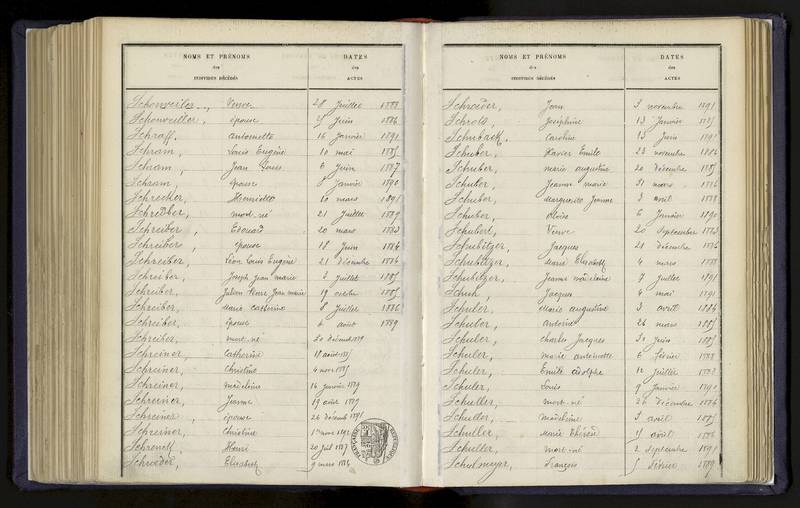 NOMS ET PRÉNOMS
des
INDIVIDUS DÉCÉDÉS
DATES
des
ACTES
Schonweiler, Veuve 28 Juillet 1888
Schonweiller, épouse Juin 1886
Schraff, antoinette 16 Janvier 1891
Schram, Louis Eugène 10 mai 1885
Schram, Jean Louis 6 Juin 1887
Schram, épouse Janvier 1890
Schrecker, Henriette 10 mars 1891
Schreiber, mort-né 21 Juillet 1889
Schreiber, Edouard 20 mars 1883
Schreiber, épouse 18 Juin 1884
Schreiber, Léon Louis Eugène 21 décembre 1884
Schreiber, Joseph Jean marie 3 Juillet 1885
Schreiber, Julien Pierre Jean marie 19 octobre 1885
Schreiber, Marie Catherine 8 Juillet 1886
Schreiber, épouse 6 août 1889
Schreiber, mort-né 20 décemb 1889
Schreiner, Catherine 18 août 1885
Schreiner, Christine 4 nov 1885
Schreiner, madeleine 16 Janvier 1889
Schreiner, Jeanne 19 août 1889
Schreiner, épouse 26 décemb 1891
Schreiner, Christine 1er 1892
Schrenck, Henri 20 Juil 1887
Schroeder, Elisabeth 9 mars 1886
NOMS ET PRÉNOMS
des
INDIVIDUS DÉCÉDÉS
DATES
des
ACTES
Schroeder, Jean 3 novembre 1891
Schrots, Joséphine 13 Janvier 1885
Schuback, Caroline 15 Juin 1891
Schuber, Xavier Emile 23 novembre 1886
Schuber, marie augustine 20 décembre 1885
Schuber, Jeanne marie 31 mars 1886
Schuber, Marguerite Jeanne 3 avril 1888
Schuber, 6 Janvier 1890
Schubert, Veuve 20 Septembre 1883
Schubetzer, Jacques 21 décembre 1886
Schubetzer, Marie Elisabeth 4 mars 1888
Schubetzer, Jeanne madeleine 7 Juillet 1891
Schuh, Jacques 4 mai 1891
Schuler, Marie augustine 3 avril 1884
Schuler, antoine 26 mars 1885
Schuler, Charles Jacques 30 Juin 1885
Schuler, marie antoinette 6 février 1888
Schuler, Emile adolphe 12 Juillet 1888
Schuler, Louis 9 Janvier 1890
Schuller, mort-né 26 décembre 1884
Schuller, Madeleine 3 avril 1885
Schuller, Marie Thérèse avril 1886
Schuller, mort-né 2 Septembre 1891
Schulmeyer, François 5 février 1889